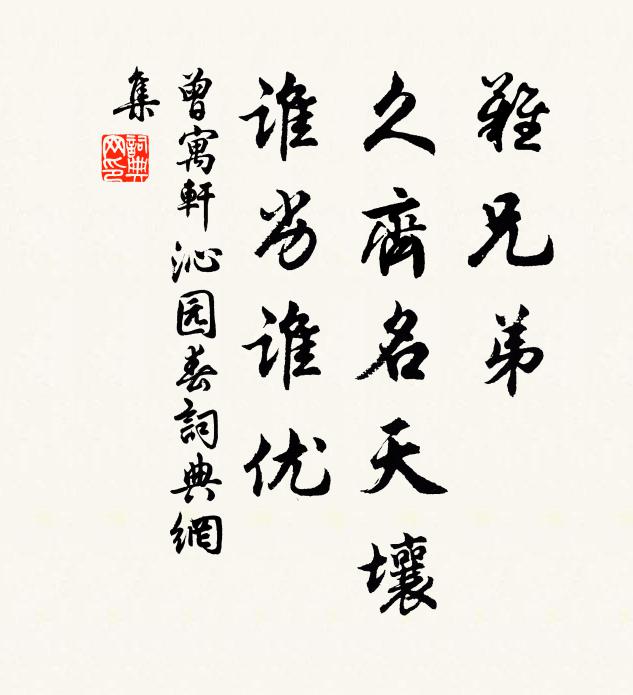 難兄弟
久齊名天壤
谁劣谁优
曾寓軒沁园春詞典網
集
詞典网印